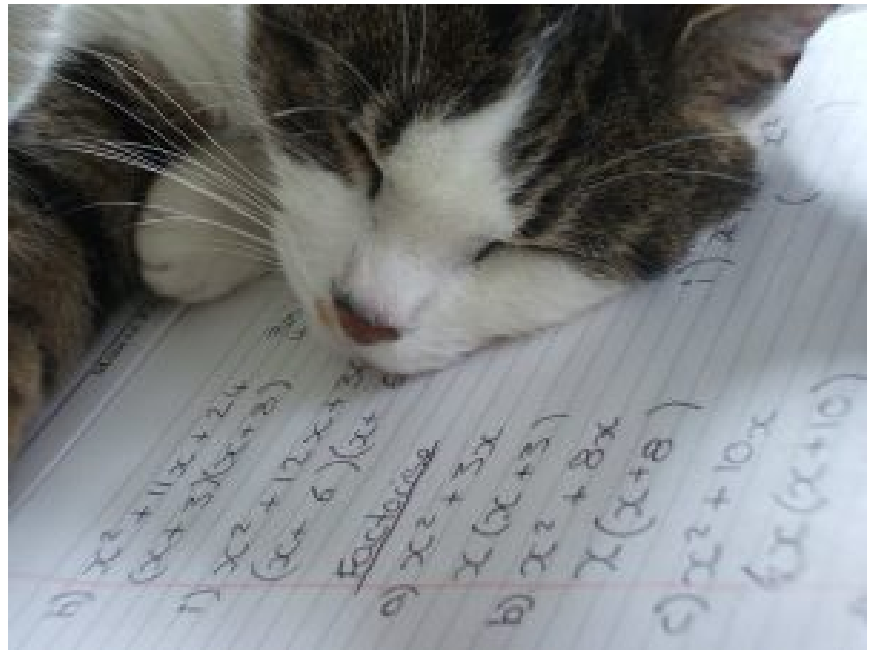 h) x² + 11x + 24
(x + 3)(x + 8)
i) x² + 12x + 36
(x + 6)(x +
Factorise
a) x² + 3x
x(x + 3)
b) x² + 8x
x(x + 8)
c) x² + 10x
x(x + 10)
j)